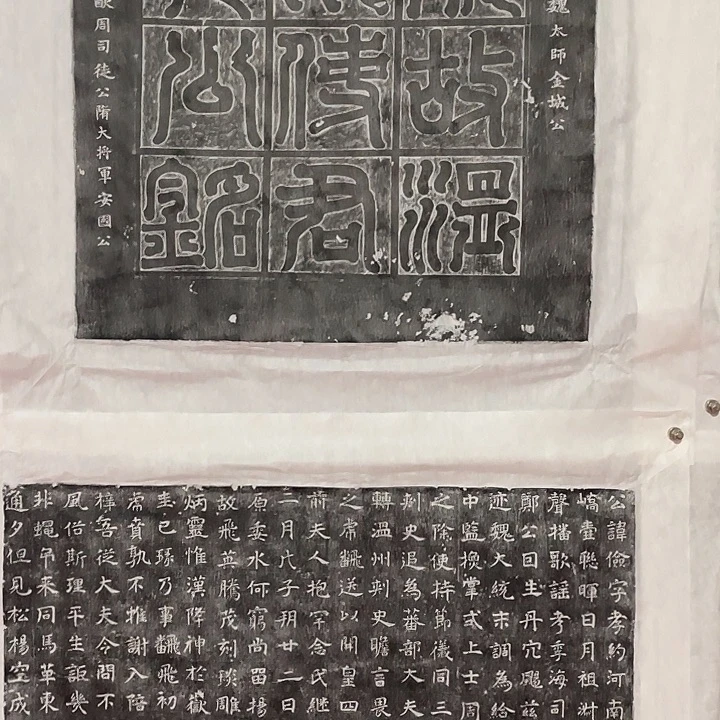 魏太師金城公
故溫
使君
公銘
周司徒公隋大將軍安國公
公諱儉字孝約河南
嶠壺聮暉日月祖澍
聲播歌謠考季海司
鄭公曰生丹穴颺茲
迹魏大統末調為給
中監換掌式上士周
之除使持節儀同三
刾史追為蕃部大夫
轉溫州刾史瞻言畏
之常飜送以開皇四
前夫人抱罕念氏継
二月戊子朔廿二日
原委水何窮尚留揚
故飛英騰茂刻琰雕
炳靈惟漢降神於嶽
圭已瑑乃事飜飛初
常賁孰不惟謝入陪
梓吾從大夫今問不
風俗斯理平生詎幾
非蠅吊来同馬革東
通夕但見松楊空成